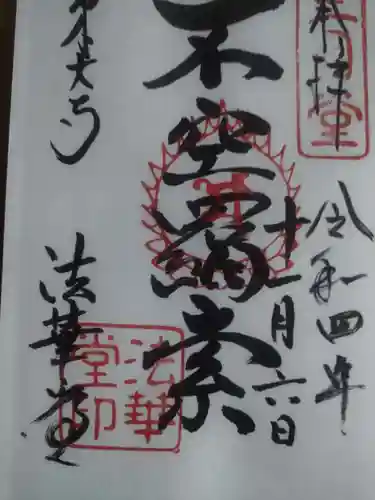 奉拝
令和四年
十一月六日
不空羂索
東大寺
法華堂
法華
堂印